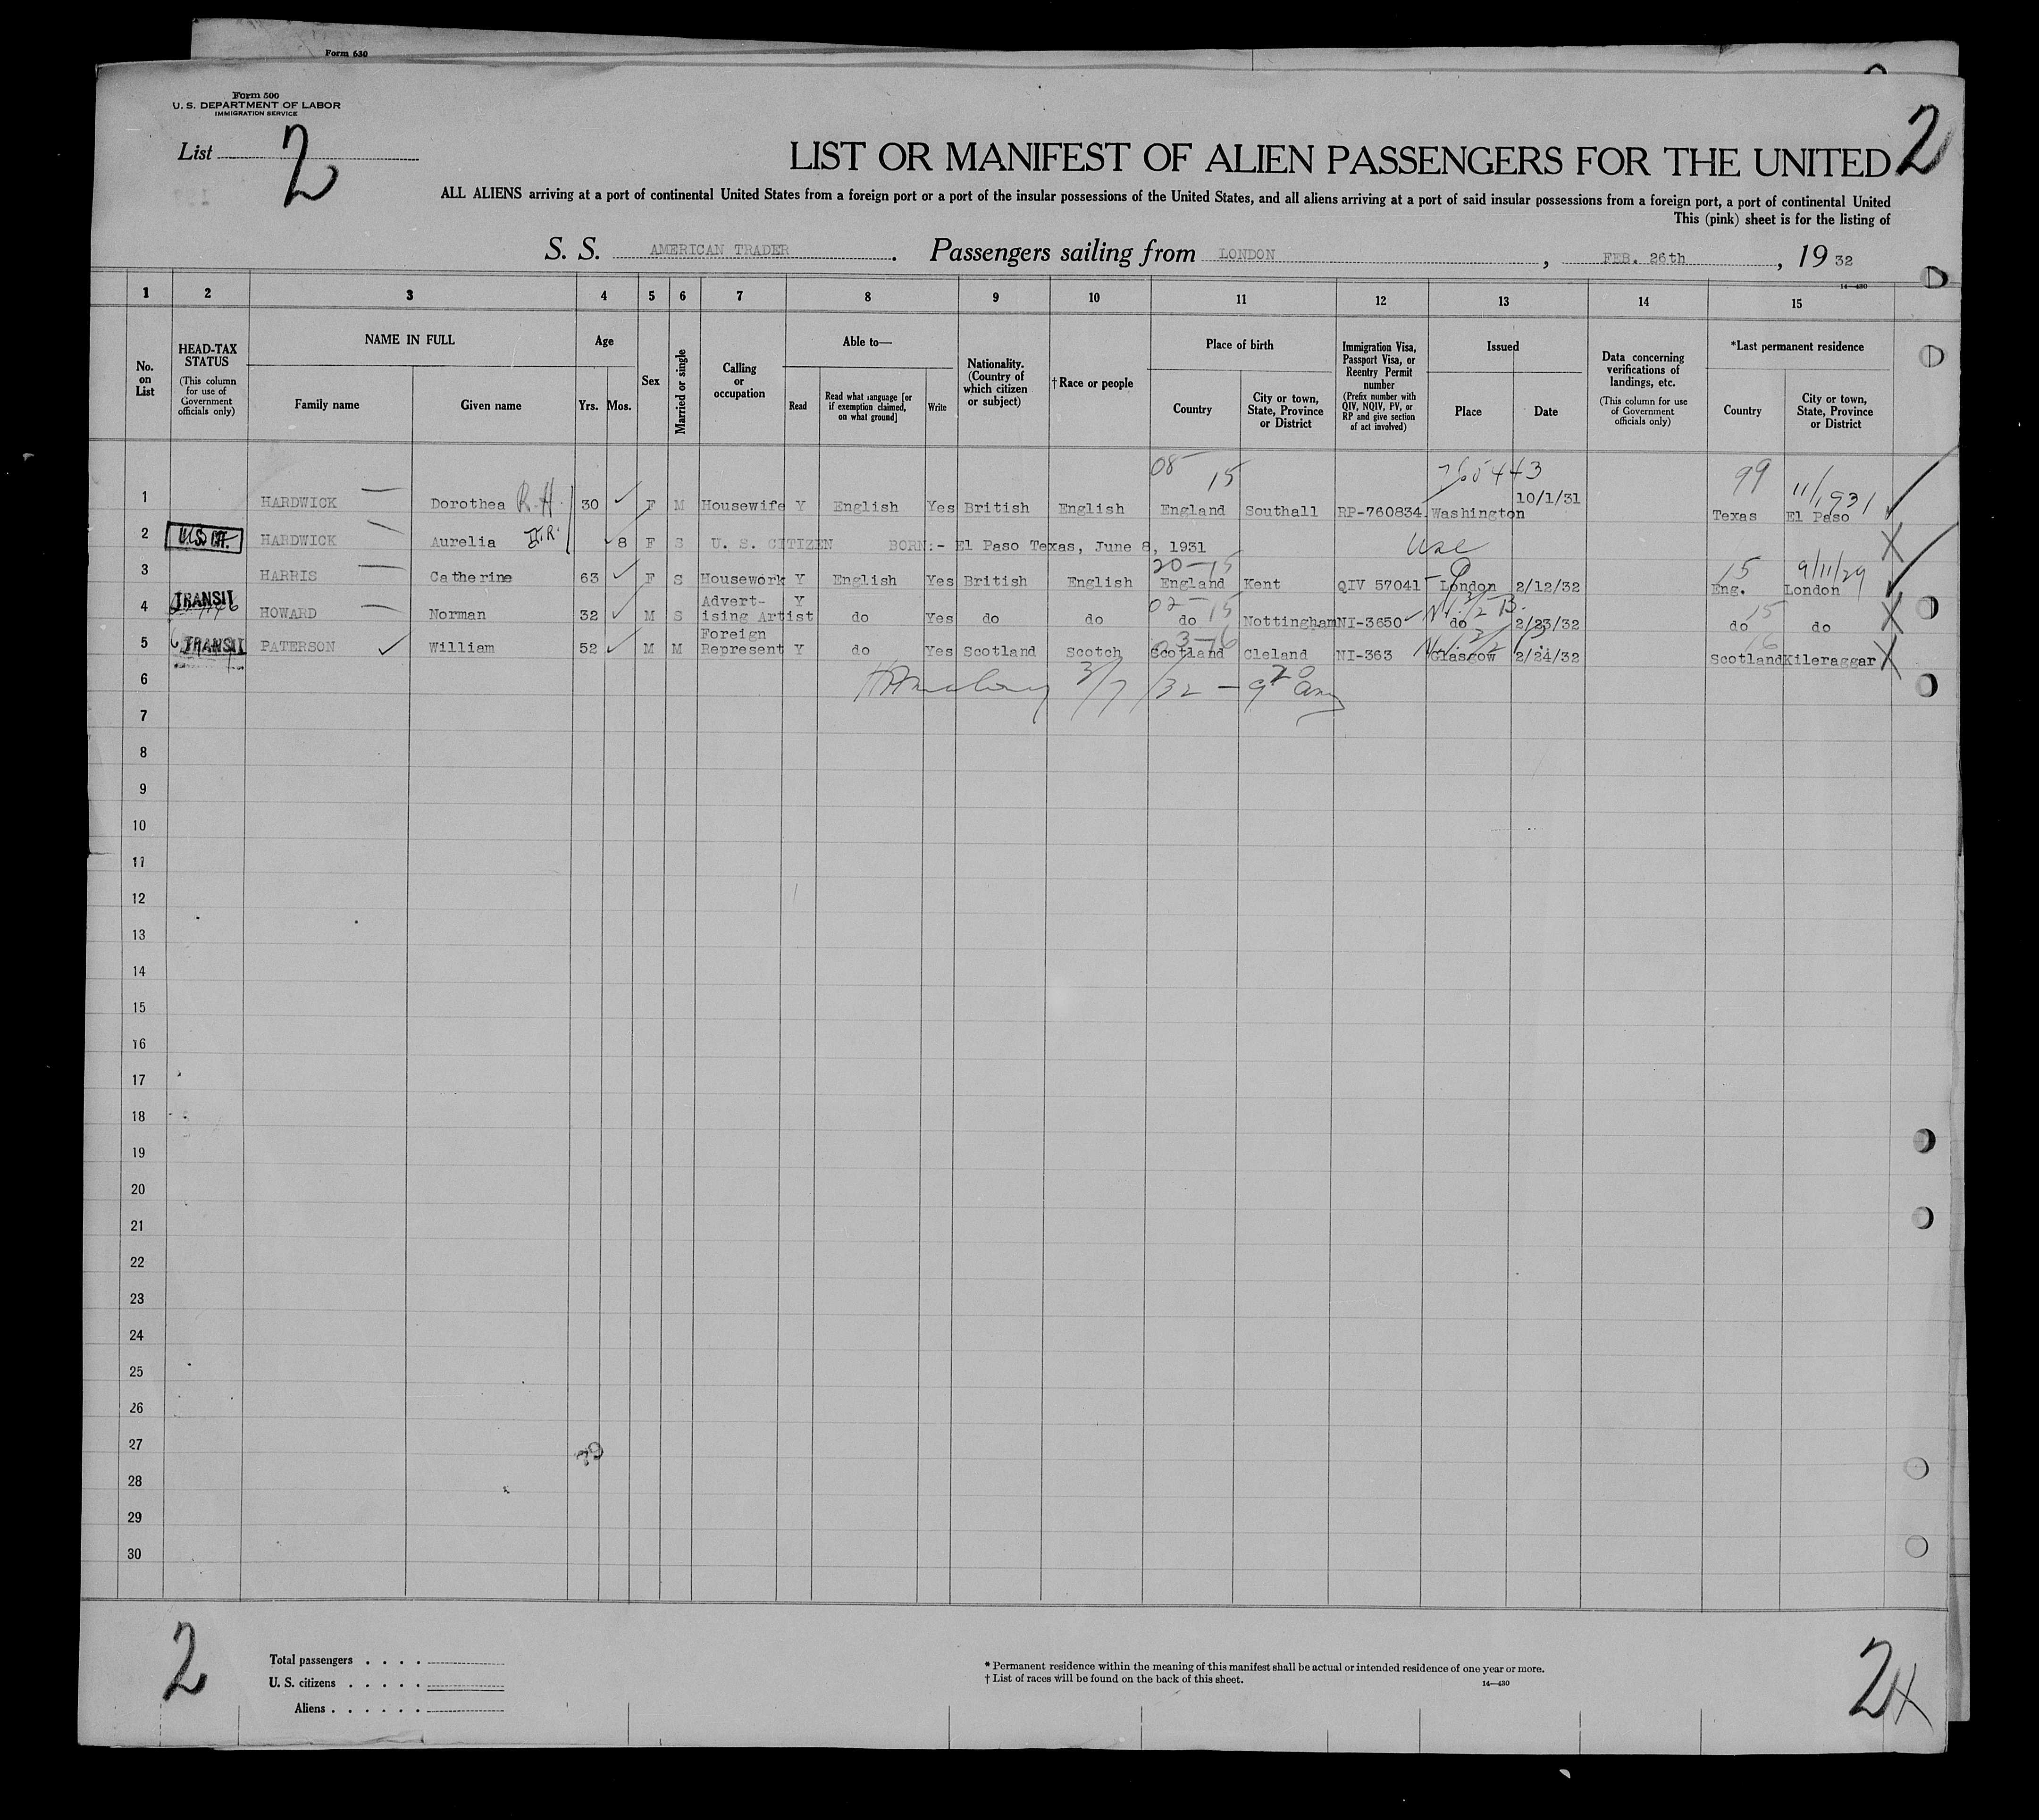 Form 630
Form 500
U. S. DEPARTMENT OF LABOR
IMMIGRATION SERVICE
List 2
2
LIST OR MANIFEST OF ALIEN PASSENGERS FOR THE UNITED
ALL ALIENS arriving at a port of continental United States from a foreign port or a port of the insular possessions of the United States, and all aliens arriving at a port of said insular possessions from a foreign port, a port of continental United
This (pink) sheet is for the listing of
S. S. AMERICAN TRADER. Passengers sailing from LONDON, FEB. 26th, 19 32
14—430
1 2 3 4 5 6 7 8 9 10 11 12 13 14 15
No. on List
HEAD-TAX STATUS (This column for use of Government officials only)
NAME IN FULL
Family name Given name
Age
Yrs. Mos.
Sex
Married or single
Calling or occupation
Able to—
Read
Read what language [or if exemption claimed, on what ground]
Write
Nationality. (Country of which citizen or subject)
† Race or people
Place of birth
Country
City or town, State, Province or District
Immigration Visa, Passport Visa, or Reentry Permit number (Prefix number with QIV, NQIV, PV, or RP and give section of act involved)
Issued
Place Date
Data concerning verifications of landings, etc. (This column for use of Government officials only)
*Last permanent residence
Country
City or town, State, Province or District
08 15 99 11/1931
1 HARDWICK — Dorothea R.H. 30 ✓ F M Housewife Y English Yes British English England Southall RP-760834 Washington 10/1/31 Texas El Paso ✓
2 HARDWICK — Aurelia 8 F S U. S. CITIZEN BORN:- El Paso Texas, June 8, 1931 X
20—15 15 9/11/29
3 HARRIS — Catherine 63 ✓ F S Housework Y English Yes British English England Kent QIV 57041 London 2/12/32 Eng. London ✓
02—15 15
4 TRANSIT HOWARD — Norman 32 ✓ M S Advert- ising Artist Y do Yes do do do Nottingham NI-3650 ✓ do 2/23/32 do do X
03—16 16
5 TRANSIT PATERSON ✓ William 52 ✓ M M Foreign Represent Y do Yes Scotland Scotch Scotland Cleland NI-363 Glasgow 2/24/32 Scotland Kileraggar X
6 3/7/32 — 9 20 am
7
8
9
10
11
12
13
14
15
16
17
18
19
20
21
22
23
24
25
26
27
28
29
30
2
Total passengers . . . .
U. S. citizens . . . . .
Aliens . . . . . .
* Permanent residence within the meaning of this manifest shall be actual or intended residence of one year or more.
† List of races will be found on the back of this sheet.
14—430
2 X